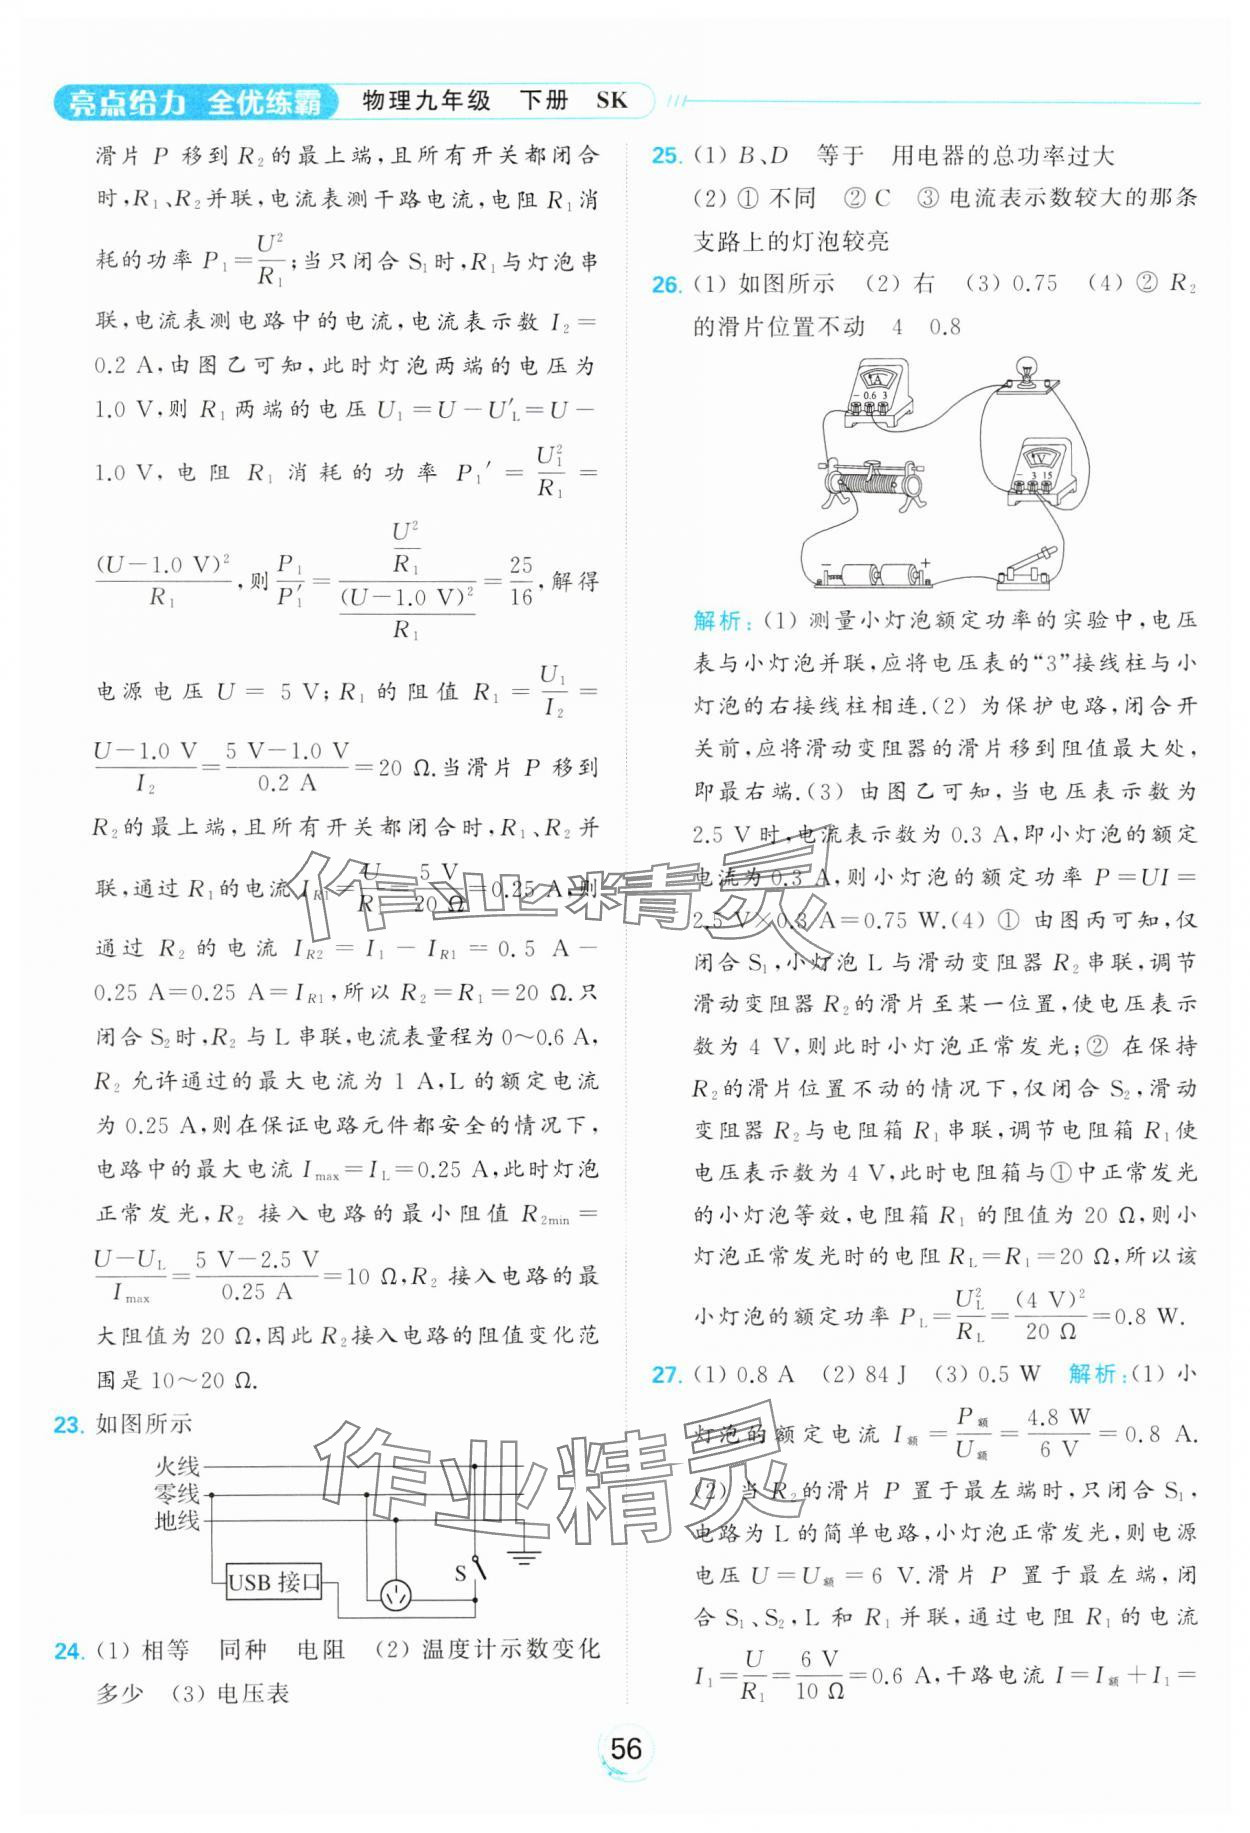 亮点给力 全优练霸 物理九年级 下册 SK
滑片 P 移到 R₂ 的最上端,且所有开关都闭合
时,R₁、R₂并联,电流表测干路电流,电阻 R₁消
耗的功率 P₁=U²/R₁;当只闭合 S₁时,R₁与灯泡串
联,电流表测电路中的电流,电流表示数 I₂=
0.2 A,由图乙可知,此时灯泡两端的电压为
1.0 V,则 R₁两端的电压U₁=U-U′L=U-
1.0 V,电阻 R₁消耗的功率 P₁′=U₁²/R₁=
(U-1.0 V)²/R₁,则P₁/P′₁=(U²/R₁)/((U-1.0 V)²/R₁)=25/16,解得
电源电压U= 5 V;R₁的阻值 R₁=U₁/I₂=
(U-1.0 V)/I₂=(5 V-1.0 V)/0.2 A=20 Ω.当滑片 P 移到
R₂的最上端,且所有开关都闭合时,R₁、R₂并
联,通过 R₁的电流 I_R1=U/R₁=5 V/20 Ω=0.25 A,则
通过 R₂ 的电流 I_R2=I₁-I_R1=0.5 A-
0.25 A=0.25 A=I_R1,所以 R₂=R₁=20 Ω.只
闭合 S₂时,R₂与 L 串联,电流表量程为 0~0.6 A,
R₂允许通过的最大电流为 1 A,L 的额定电流
为 0.25 A,则在保证电路元件都安全的情况下,
电路中的最大电流 I_max=I_L=0.25 A,此时灯泡
正常发光,R₂ 接入电路的最小阻值 R_2min=
(U-U_L)/I_max=(5 V-2.5 V)/0.25 A=10 Ω,R₂接入电路的最
大阻值为 20 Ω,因此 R₂接入电路的阻值变化范
围是 10~20 Ω.
23. 如图所示
火线
零线
地线
USB 接口
S
24. (1) 相等 同种 电阻 (2) 温度计示数变化
多少 (3) 电压表
25. (1) B、D 等于 用电器的总功率过大
(2) ① 不同 ② C ③ 电流表示数较大的那条
支路上的灯泡较亮
26. (1) 如图所示 (2) 右 (3) 0.75 (4) ② R₂
的滑片位置不动 4 0.8
A
- 0.6 3
V
- 3 15
- +
解析:(1) 测量小灯泡额定功率的实验中,电压
表与小灯泡并联,应将电压表的“3”接线柱与小
灯泡的右接线柱相连.(2) 为保护电路,闭合开
关前,应将滑动变阻器的滑片移到阻值最大处,
即最右端.(3) 由图乙可知,当电压表示数为
2.5 V 时,电流表示数为 0.3 A,即小灯泡的额定
电流为 0.3 A,则小灯泡的额定功率 P=UI=
2.5 V×0.3 A=0.75 W.(4) ① 由图丙可知,仅
闭合 S₁,小灯泡 L 与滑动变阻器 R₂串联,调节
滑动变阻器 R₂的滑片至某一位置,使电压表示
数为 4 V,则此时小灯泡正常发光;② 在保持
R₂的滑片位置不动的情况下,仅闭合 S₂,滑动
变阻器 R₂与电阻箱 R₁串联,调节电阻箱 R₁使
电压表示数为 4 V,此时电阻箱与①中正常发光
的小灯泡等效,电阻箱 R₁ 的阻值为 20 Ω,则小
灯泡正常发光时的电阻 R_L=R₁=20 Ω,所以该
小灯泡的额定功率 P_L=U_L²/R_L=(4 V)²/20 Ω=0.8 W.
27. (1) 0.8 A (2) 84 J (3) 0.5 W 解析:(1) 小
灯泡的额定电流 I额=P额/U额=4.8 W/6 V=0.8 A.
(2) 当 R₂的滑片 P 置于最左端时,只闭合 S₁,
电路为 L 的简单电路,小灯泡正常发光,则电源
电压 U=U额=6 V.滑片 P 置于最左端,闭
合 S₁、S₂,L 和 R₁并联,通过电阻 R₁的电流
I₁=U/R₁=6 V/10 Ω=0.6 A,干路电流 I=I额+I₁=
作业精灵
作业精灵
56